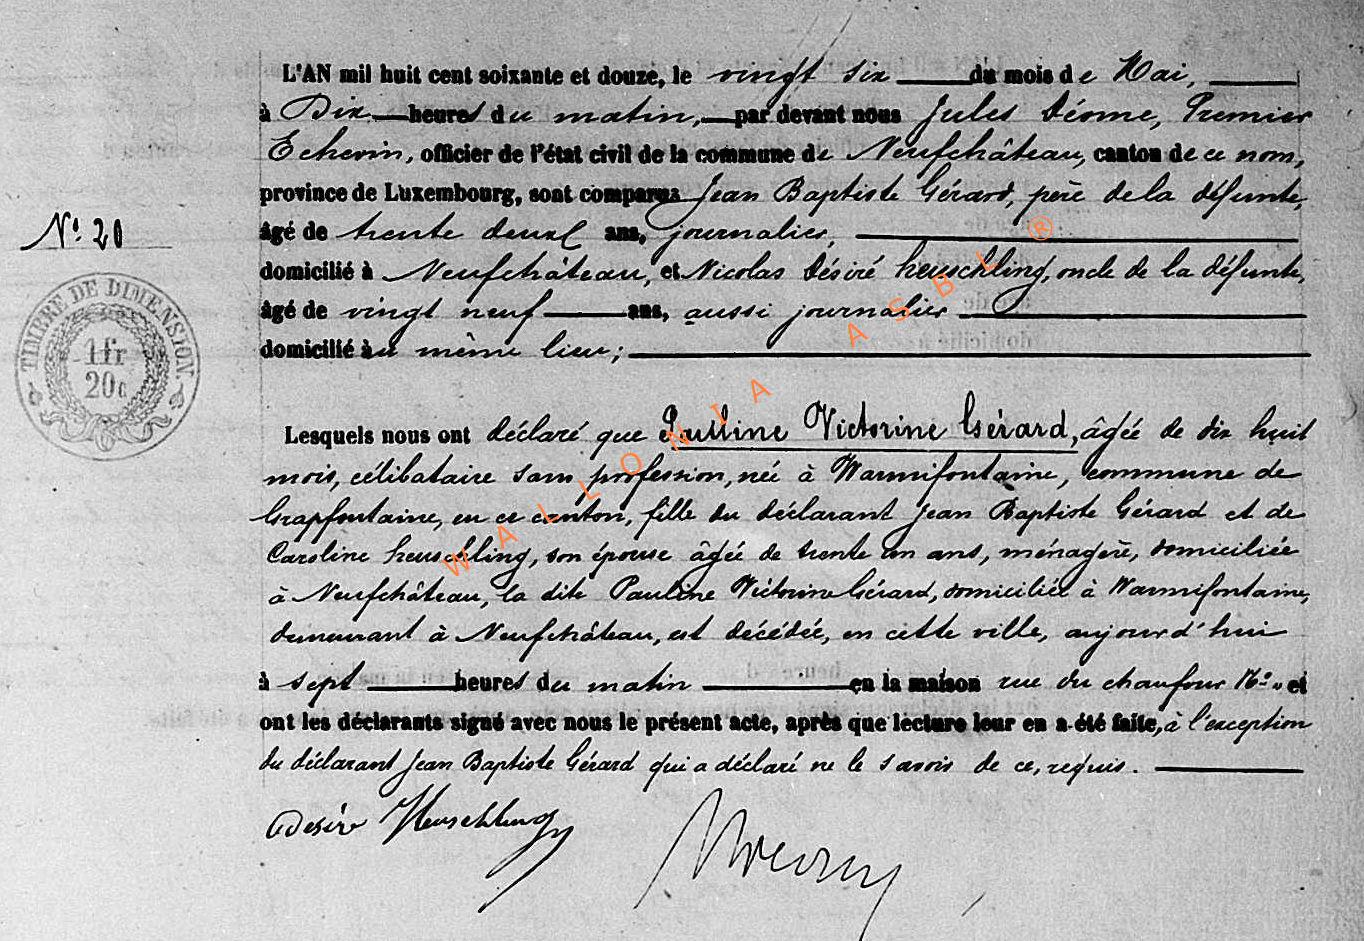 L'AN mil huit cent soixante et douze, le vingt six du mois de Mai,
à Dix heures du matin, par devant nous Jules Déome, Premier
Echevin, officier de l'état civil de la commune de Neufchâteau, canton de ce nom,
province de Luxembourg, sont comparus Jean Baptiste Gérard, père de la défunte,
âgé de trente deux ans, journalier,
N° 20
domicilié à Neufchâteau, et Nicolas Désiré heuschling, oncle de la défunte,
âgé de vingt neuf ans, aussi journalier
domicilié au même lieu;
TIMBRE DE DIMENSION.
1 fr
20 c
Lesquels nous ont déclaré que Pauline Victorine Gérard, âgée de dix huit
mois, célibataire sans profession, née à Warmifontaine, commune de
Grapfontaine, en ce canton, fille du déclarant Jean Baptiste Gérard et de
Caroline heuschling, son épouse âgée de trente un ans, ménagère, domiciliée
à Neufchâteau, la dite Pauline Victorine Gérard, domiciliée à Warmifontaine,
demeurant à Neufchâteau, est décédée, en cette ville, aujourd'hui
à sept heures du matin en la maison rue du chaufour N° " et
ont les déclarants signé avec nous le présent acte, après que lecture leur en a été faite, à l'exception
du déclarant Jean Baptiste Gérard qui a déclaré ne le savoir de ce, requis.
Désiré Heuschling
WALLONIA ASBL ®